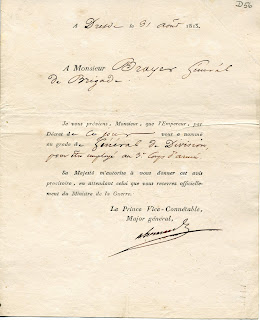 D56
A Dresde le 31 août 1813.
A Monsieur Brayer Général
de Brigade.
Je vous préviens, Monsieur, que l'Empereur, par
Décret de ce jour vous a nommé
au grade de Général de Division,
pour être employé au 3e Corps d'armée.
Sa Majesté m'autorise à vous donner cet avis
provisoire, en attendant celui que vous recevrez officiellement
du Ministre de la Guerre.
Le Prince Vice-Connétable,
Major général,